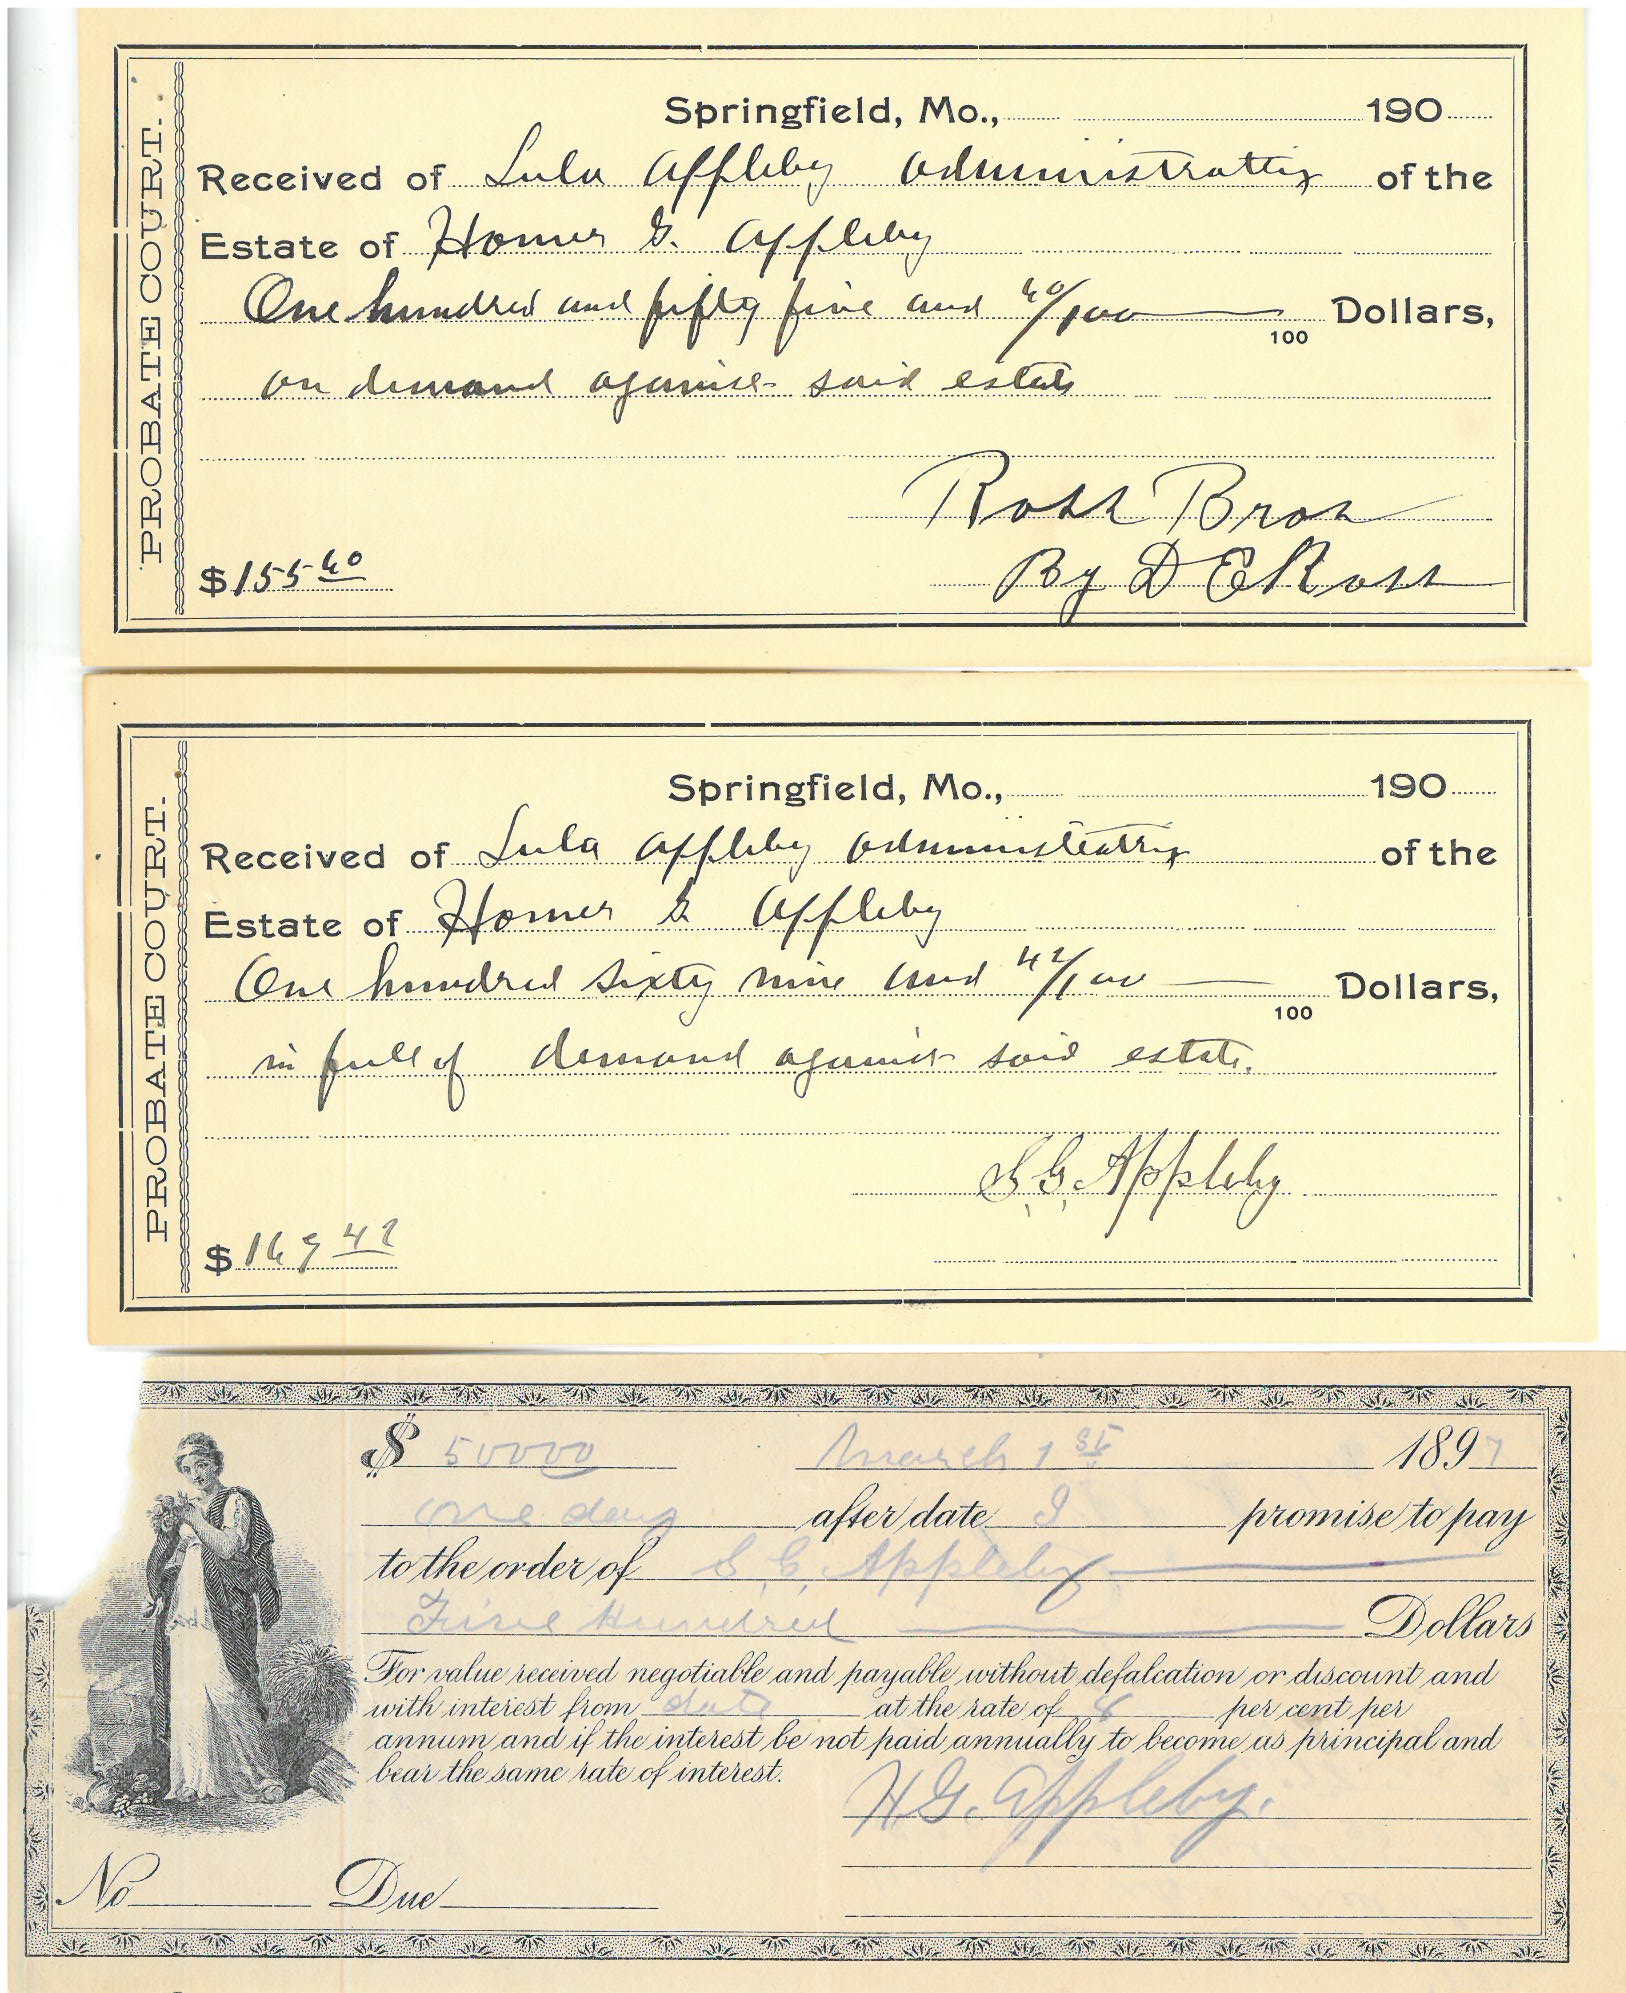 PROBATE COURT.
Springfield, Mo., 190
Received of Lula Appleby administratrix of the
Estate of Homer G. Appleby
One hundred and fifty five and 40/100 Dollars,
100
on demand against said estate
Ross Bros
By D E Ross
$155 40
PROBATE COURT.
Springfield, Mo., 190
Received of Lula Appleby administratrix of the
Estate of Homer G. Appleby
One hundred sixty nine and 42/100 Dollars,
100
in full of demand against said estate.
S.G. Appleby
$169 42
$ 50000 March 1st 1897
one day after date I promise to pay
to the order of S.G. Appleby
Five Hundred Dollars
For value received negotiable and payable without defalcation or discount and
with interest from date at the rate of 8 per cent per
annum and if the interest be not paid annually to become as principal and
bear the same rate of interest.
H.G. Appleby.
No Due